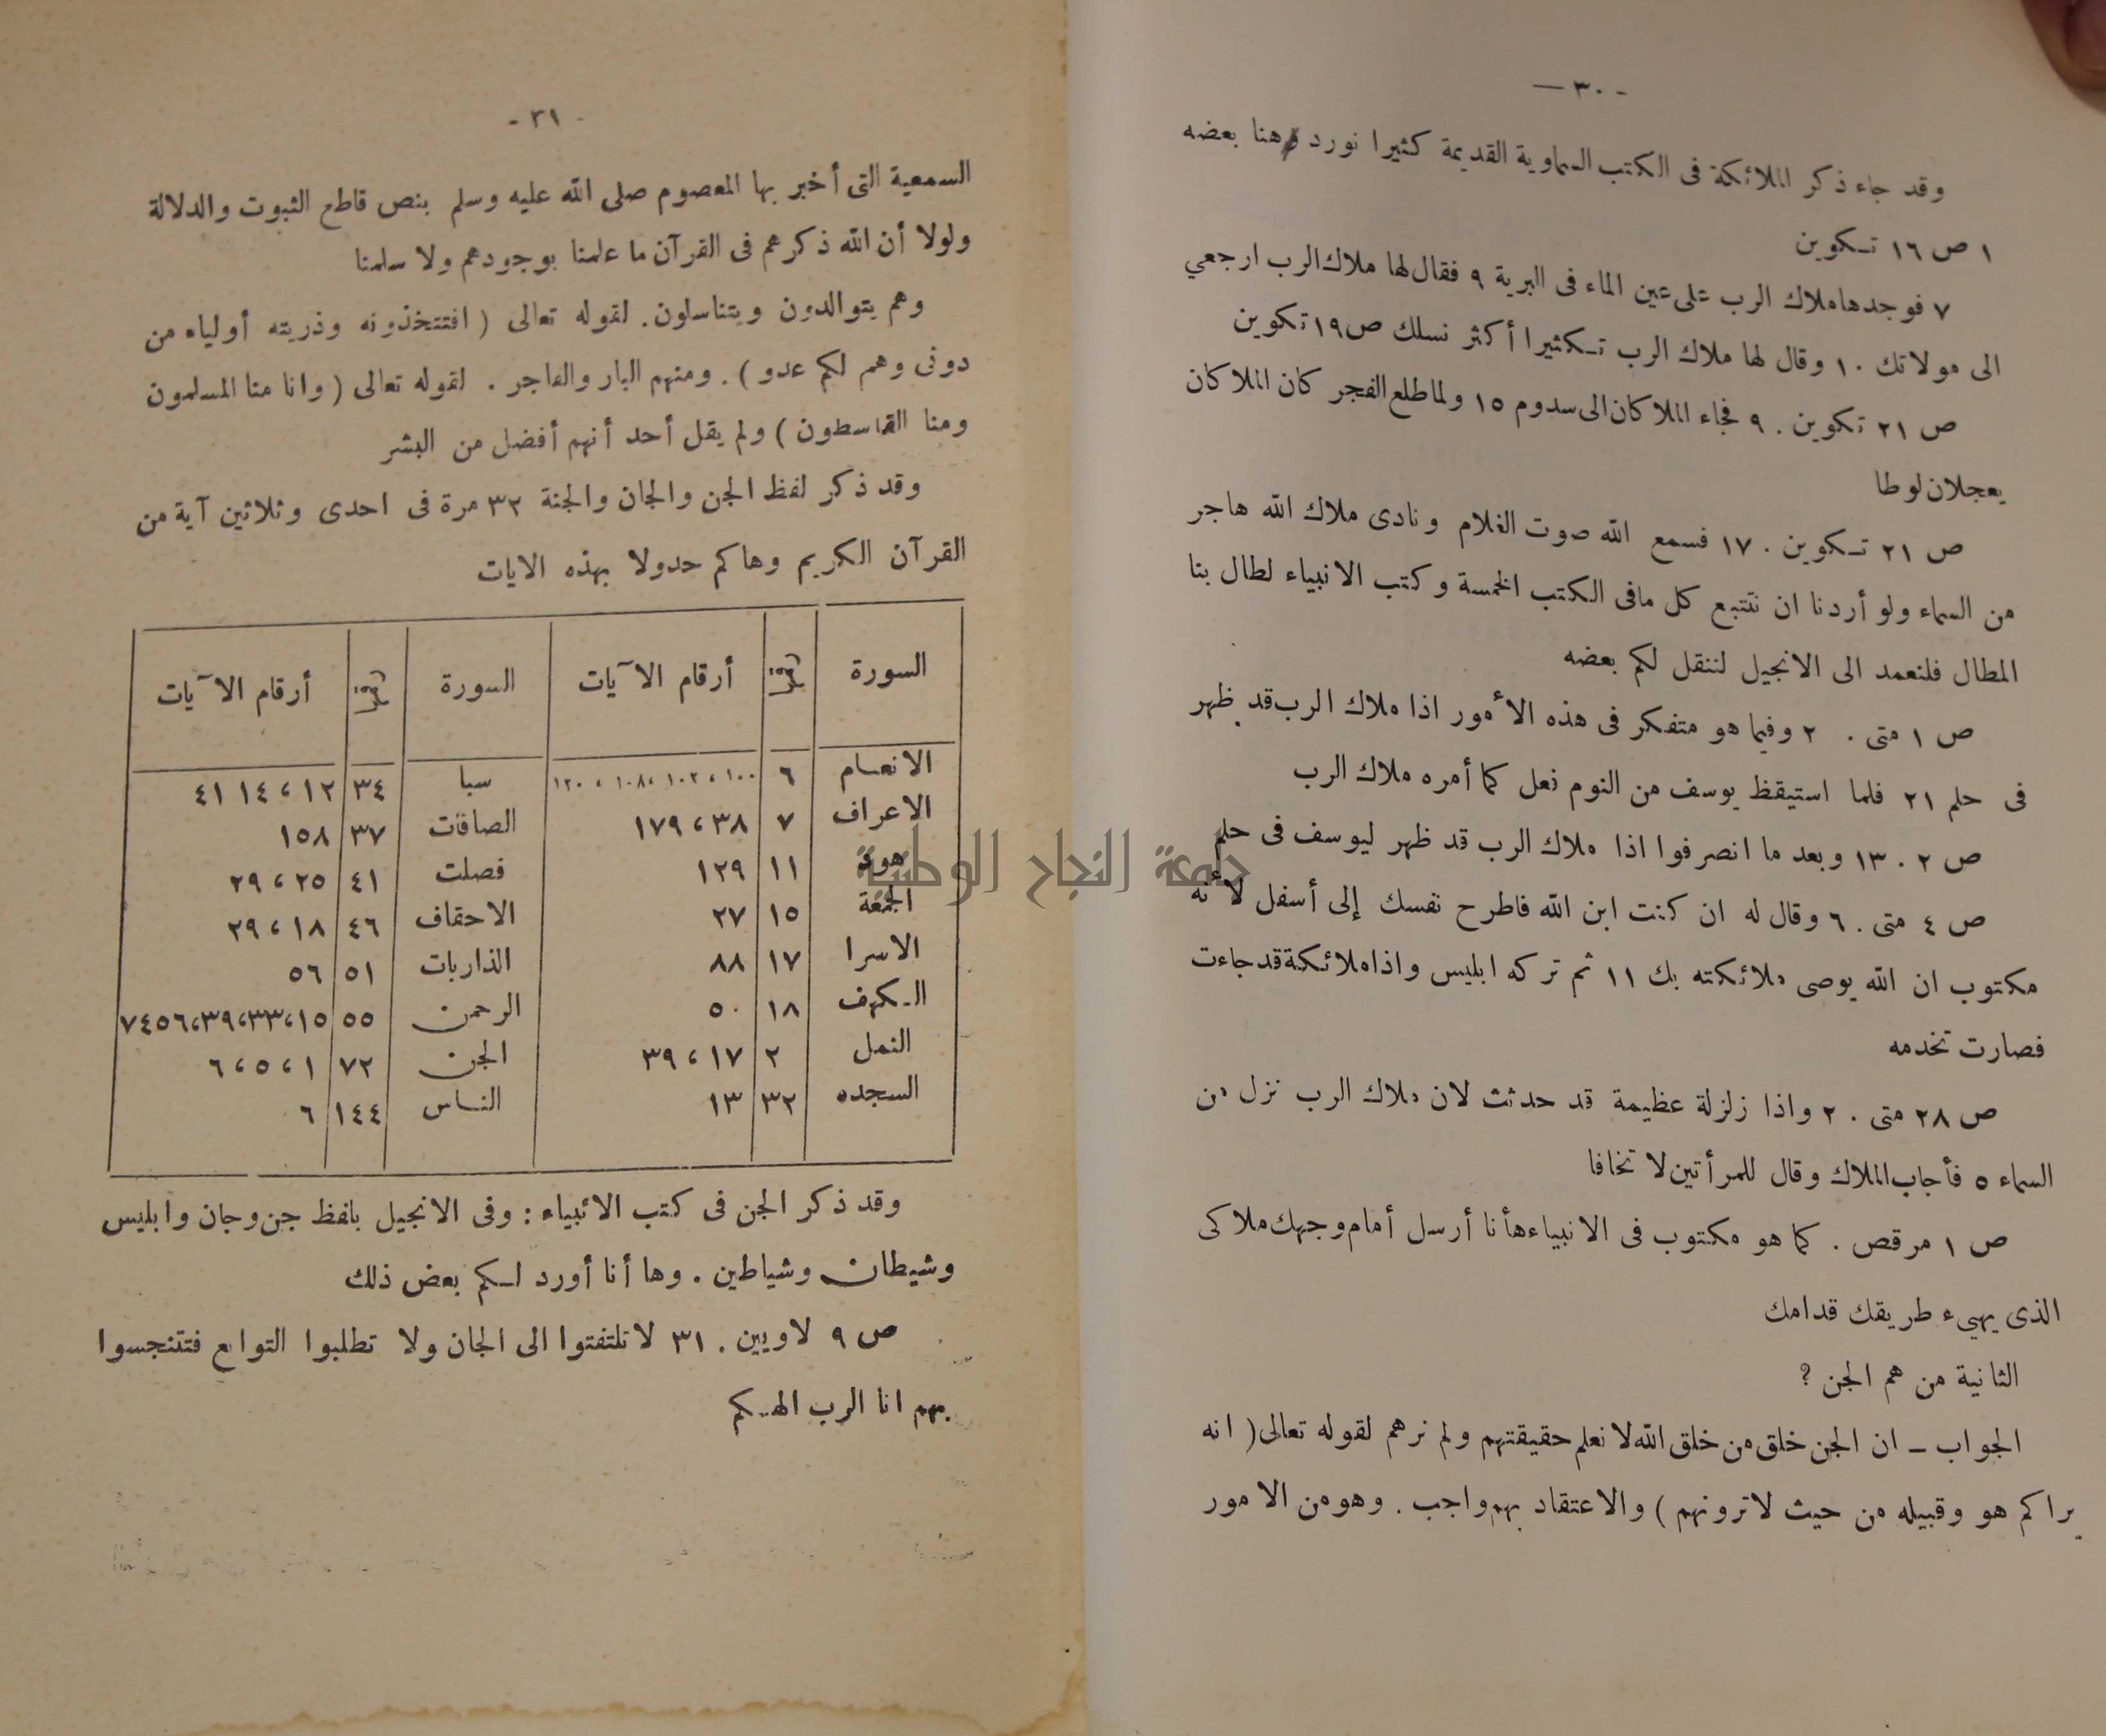 - ٣٠ —
وقد جاء ذكر الملائكة فى الكتب السماوية القديمة كثيرا نورد هنا بعضه
١ ص ١٦ تـكوين
٧ فوجدها ملاك الرب على عين الماء فى البرية ٩ فقال لها ملاك الرب ارجعي
الى مولاتك ١٠ وقال لها ملاك الرب تـكثيرا أكثر نسلك ص ١٩ تكوين
ص ٢١ تكوين . ٩ فجاء الملاكان الى سدوم ١٥ ولما طلع الفجر كان الملاكان
يعجلان لوطا
ص ٢١ تـكوين . ١٧ فسمع الله صوت الغلام ونادى ملاك الله هاجر
من السماء ولو أردنا ان نتتبع كل مافى الكتب الخمسة وكتب الانبياء لطال بنا
المطال فلنعمد الى الانجيل لننقل لكم بعضه
ص ١ متى . ٢ وفيما هو متفكر فى هذه الأمور اذا ملاك الرب قد ظهر
فى حلم ٢١ فلما استيقظ يوسف من النوم نعل كما أمره ملاك الرب
ص ٢ . ١٣ وبعد ما انصرفوا اذا ملاك الرب قد ظهر ليوسف فى حلم
ص ٤ متى . ٦ وقال له ان كنت ابن الله فاطرح نفسك إلى أسفل لأنه
مكتوب ان الله يوصى ملائكته بك ١١ ثم تركه ابليس واذا ملائكة قد جاءت
فصارت تخدمه
ص ٢٨ متى . ٢ واذا زلزلة عظيمة قد حدثت لان ملاك الرب نزل من
السماء ٥ فأجاب الملاك وقال للمرأتين لا تخافا
ص ١ مرقص . كما هو مكتوب فى الانبياء هأنا أرسل أمام وجهك ملاكى
الذى يهيء طريقك قدامك
الثانية من هم الجن ؟
الجواب ـ ان الجن خلق من خلق الله لا نعلم حقيقتهم ولم نرهم لقوله تعالى ( انه
يراكم هو وقبيله من حيث لا ترونهم ) والاعتقاد بهم واجب . وهو من الامور
- ٣١ -
السمعية التى أخبر بها المعصوم صلى الله عليه وسلم بنص قاطع الثبوت والدلالة
ولولا أن الله ذكرهم فى القرآن ما علمنا بوجودهم ولا سلمنا
وهم يتوالدون ويتناسلون. لقوله تعالى ( افتتخذونه وذريته أولياء من
دونى وهم لكم عدو ) . ومنهم البار والفاجر . لقوله تعالى ( وانا منا المسلمون
ومنا القاسطون ) ولم يقل أحد أنهم أفضل من البشر
وقد ذكر لفظ الجن والجان والجنة ٣٢ مرة فى احدى وثلاثين آية من
القرآن الكريم وهاكم حدولا بهذه الايات
السورة رقمها أرقام الآيات السورة رقمها أرقام الآيات
الانعـام ٦ ١٠٠ ، ١٠٢ ،١٠٨ ، ١٢٠ سبا ٣٤ ١٢ ، ١٤ ٤١
الاعراف ٧ ٣٨ ، ١٧٩ الصافات ٣٧ ١٥٨
هود ١١ ١٢٩ فصلت ٤١ ٢٥ ، ٢٩
الجمعة ١٥ ٢٧ الاحقاف ٤٦ ١٨ ، ٢٩
الاسرا ١٧ ٨٨ الذاريات ٥١ ٥٦
الـكهف ١٨ ٥٠ الرحمن ٥٥ ١٥،٣٣،٣٩،٧٤٥٦
النمل ٢ ١٧ ، ٣٩ الجن ٧٢ ١ ، ٥ ، ٦
السجده ٣٢ ١٣ النـاس ١٤٤ ٦
وقد ذكر الجن فى كتب الائبياء : وفى الانجيل بلفظ جن وجان وابليس
وشيطان وشياطين . وها أنا أورد لـكم بعض ذلك
ص ٩ لاويين . ٣١ لا تلتفتوا الى الجان ولا تطلبوا التوابع فتتنجسوا
بهم انا الرب الهـكم
جامعة النجاح الوطنية